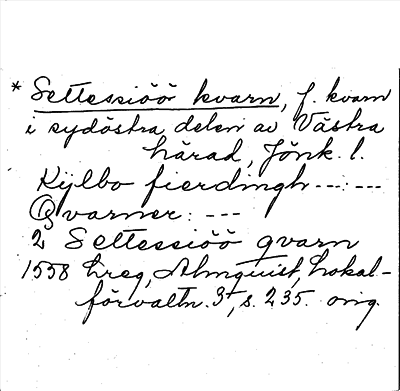 * Settessiöö kvarn, f. kvarn
i sydöstra delen av Västra
härad, Jönk. l.
Kylbo fierdingh ---:---
Qvarner: ---
2 Settessiöö qvarn
1558 hreg, Almquist, Lokal-
förvaltn. 3, s. 235. orig.